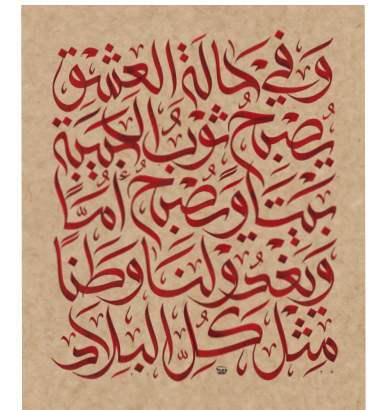 وَفِي حَالَةِ العِشْقِ
يُصبحُ ثوبُ الحَبيبَةِ
بَيتاً وَيُصبحُ أُمّاً
وَيَغْدُو لنَا وَطَناً
مِثْلَ كُلِّ البِلَادِ